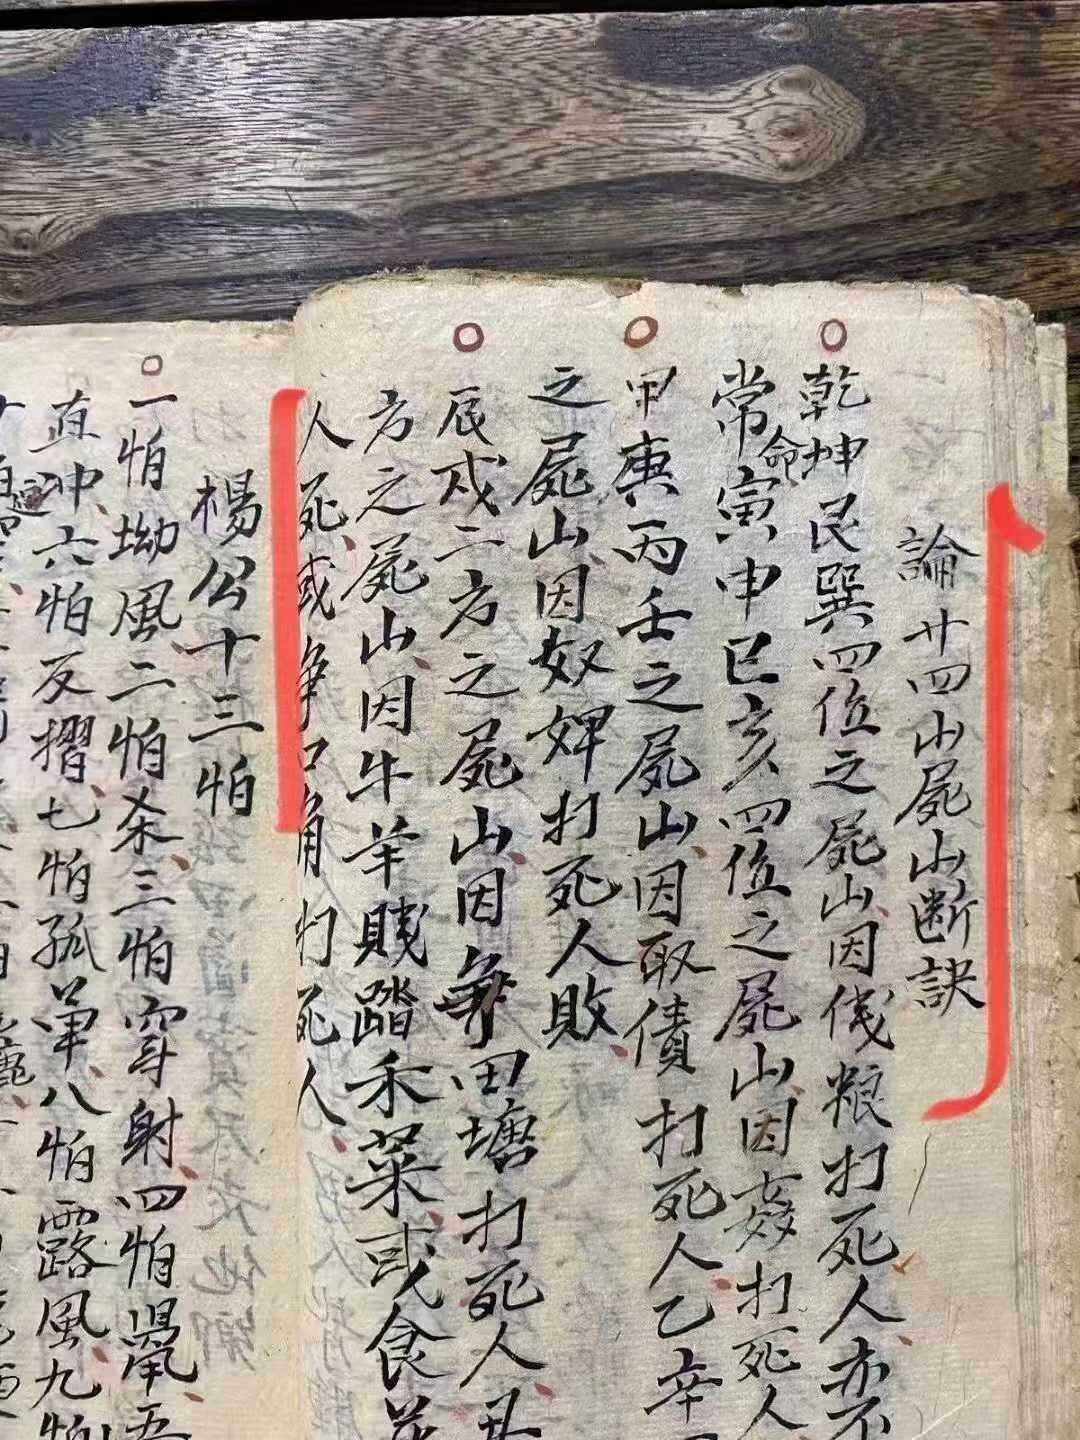 論廿四山屍山断訣
乾坤艮巽四位之屍山因伐粮打死人亦不
常命寅申巳亥四位之屍山因姦打死人
甲庚丙壬之屍山因取債打死人乙辛
之屍山因奴婢打死人敗
辰戌二方之屍山因争田塘打死人丑
方之屍山因牛羊賎踏禾菜或食
人死或争口角打死人
楊公十三怕
一怕坳風二怕杀三怕穿射四怕五
直冲六怕反摺七怕孤单八怕露風九怕